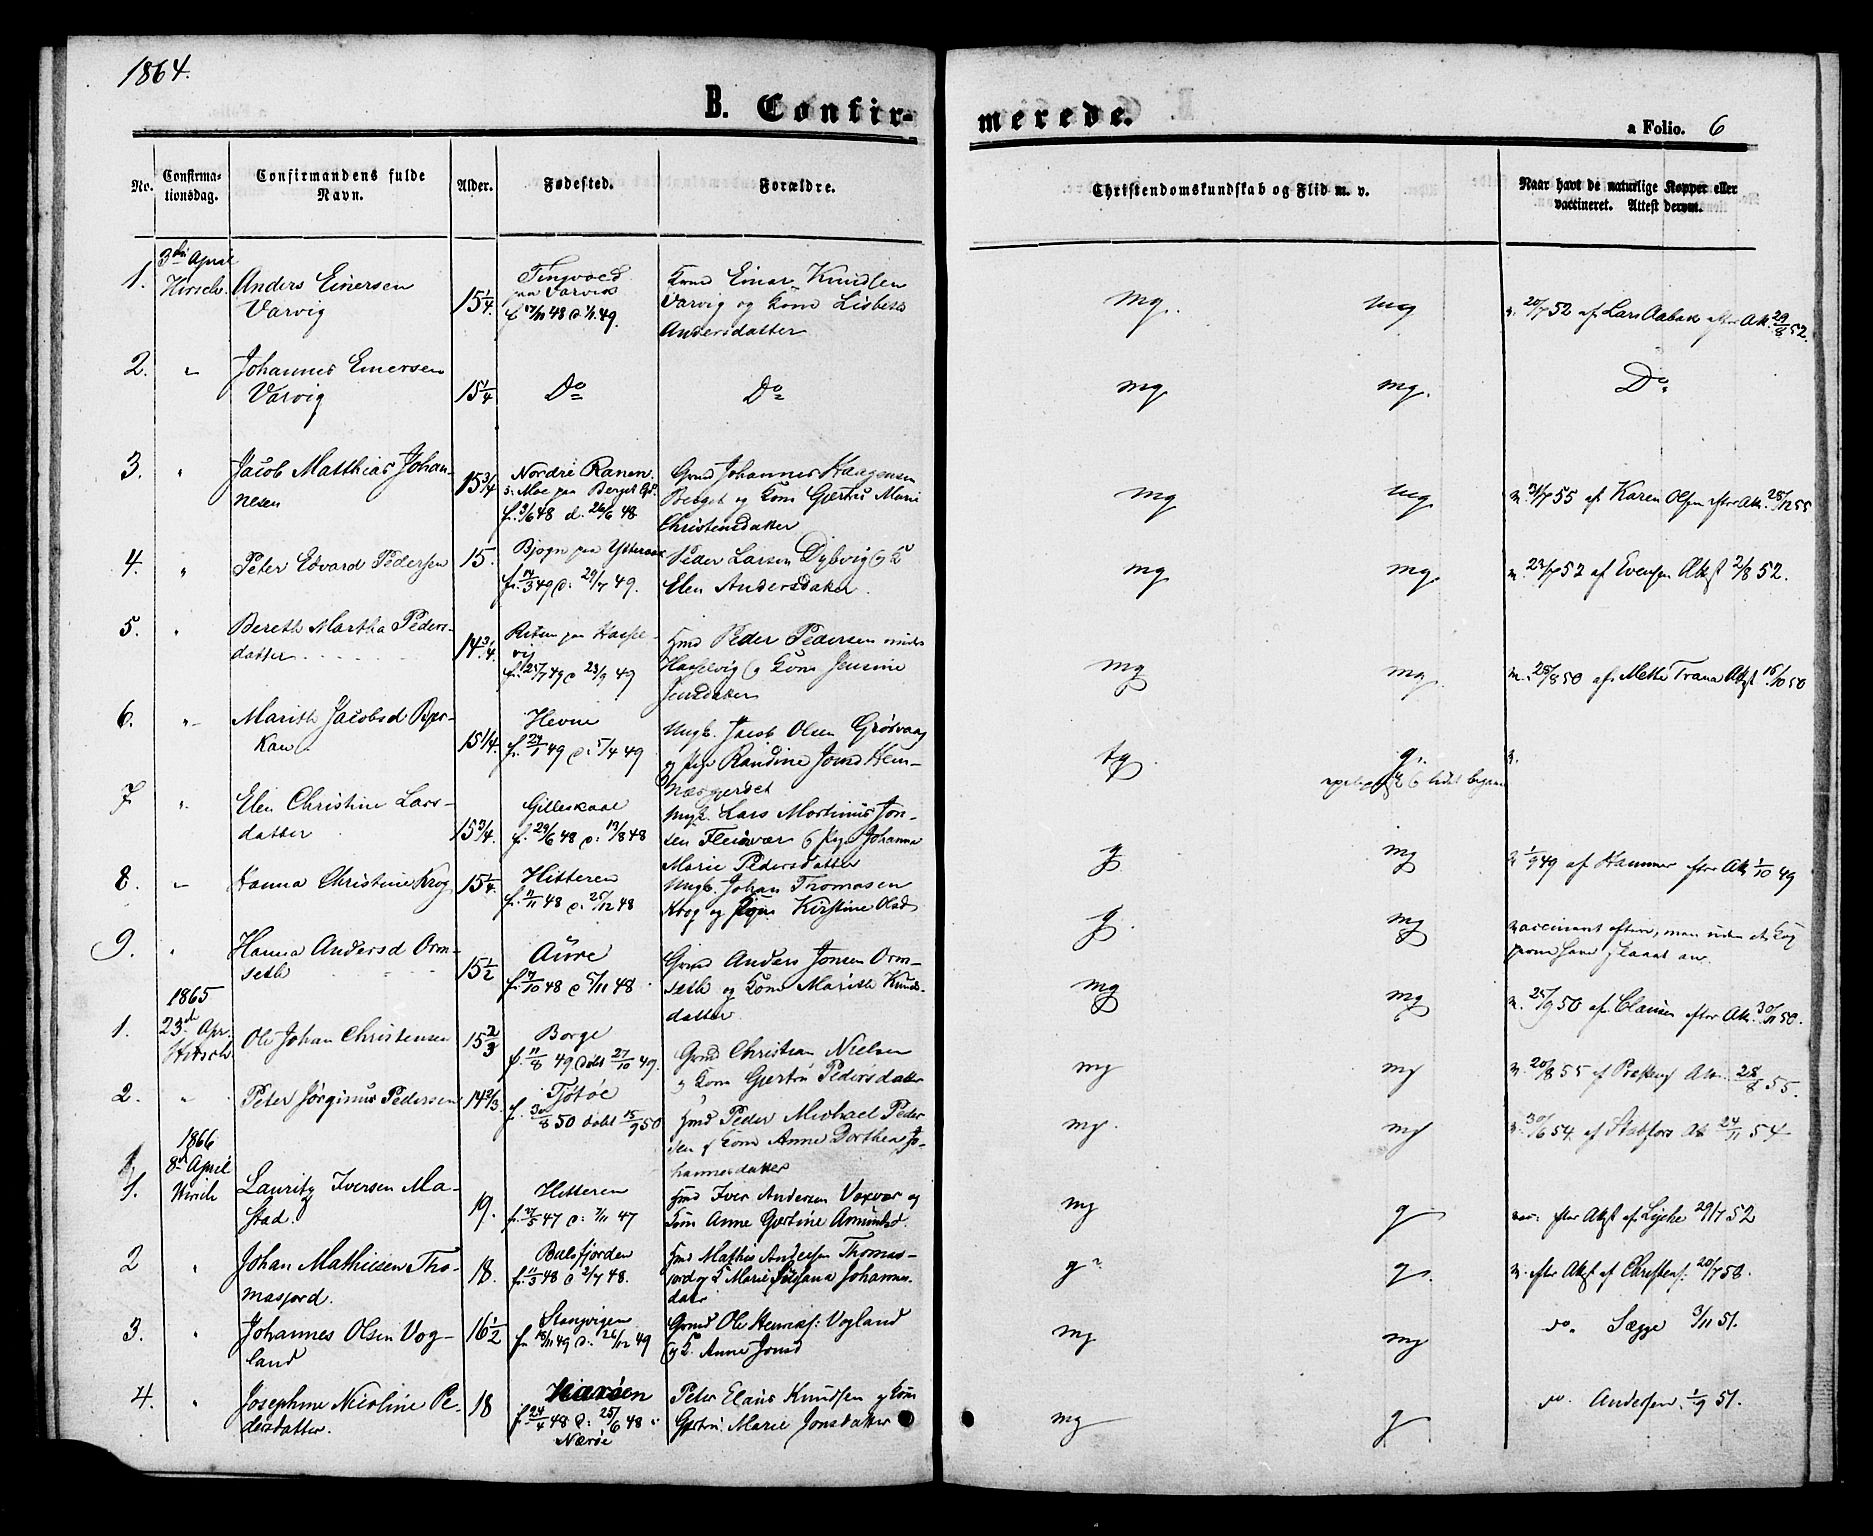 1864.
B. Confirmerede.
a Folio. 6
No.
Confirmationsdag.
Confirmandens fulde Navn.
Alder.
Fødested.
Forældre.
Christendomskundskab og Flid m. v.
Naar havt de naturlige Kopper eller vaccineret. Attest derom.
1. 3die April Hirsch.
Anders Einersen
Varvig
15 1/4
Tingvold
paa Varvig
Einar Knudsen
Varvig og Kone Lisbeth
Andersdatter
mg. mg
v. 20/7 52 af Lars Aabak efter Att. 29/8 52.
2. "
Johannes Einersen
Varvig
15 1/4
Do
Do
mg mg.
Do
3. "
Jacob Matthias Johan-
nesen
15 3/4
Nordre Ranen
f. 3/6 48 d. 26/6 48
Gmd Johannes Haagensen
Berget og Kone Gjertrud Marie
Christensdatter
mg mg
v. 31/7 55 af Karen Olsen efter Att. 28/12 55
4. "
Peter Edvard Pedersen
15.
f. 14/3 49 d. 29/7 49.
Peder Larsen Dybvig og K
Elen Andersdatter.
mg mg
v. 23/7 52 af Evensen Attest 2/8 52.
5. "
Bereth Martha Peders-
datter
14 3/4.
f. 25/7 49 d 23/9 49
Hmd Peder Pedersen
Hasselvig og Kone Jensine
Jensdatter
mg mg
v. 25/8 50 af Mette Trana Attest 16/10 50
6. "
Marith Jacobsd
15 1/4.
Hevne
f. 24/1 49 d. 5/4 49
Ungk. Jacob Olsen
og pige Randine Jonsd
tg. g.
v.
7. "
Elen Christine Lars-
datter
15 3/4.
Gilleskaal
f. 29/6 48 d. 13/8 48
Ungk. Lars Martinus Jon-
sen Fleinvær og Pige Johanna
Marie Pedersdatter
g. mg
v 1/9 49 af Hammer efter Att 1/10 49
8. "
Hanna Christine Krog
15 1/4.
Hitteren
f. 9/11 48 d. 25/12 48
Ungk. Johan Thomasen
Krog og Pige Kirstine Olsd
g. mg
9. "
Hanna Andersd Orm-
seth
15 1/2
Aure
f. 9/10 48 d 5/11 48.
Gmd Anders Jonsen Orm-
seth og Kone Marith Knuds-
datter
mg mg
v. 25/9 50 af Clausen efter Att. 30/11 50.
1865
1. 23de Apr. Hirsch.
Ole Johan Christensen
15 2/3
Borge
f. 11/8 49 døbt 27/10 49.
Gmd Christian Nielsen
og Kone Gjertru Pedersdatter
mg mg
v. 20/8 55 Att. 28/8 55.
2. "
Peter Jørginus Pedersen
14 2/3.
Tjøtøe
f. 30/8 50 døbt 15/9 50
Hmd Peder Michael Peder
sen og Kone Anne Dorthea Jo-
hannesdatter
mg. mg
v. 30/6 54. af Att 24/11 54
1866
1. 8de April Hirsch
Lauritz Iversen Ma-
stad.
19.
Hitteren
f. 17/5 47 d. 7/11 47
Hmd Iver Andersen Vaxvær og
Kone Anne Gjertine Amundsd.
mg g
vac: efter Attest af Lysche 29/7 52
2 "
Johan Mathiesen Tho-
masjord.
18.
Balsfjorden
f. 11/5 48 d 2/7 48.
Hmd Mathis Andersen Thomas-
jord og K Marie Susana Johannes-
datr
g. g.
v. efter Attest af Christens: 20/7 58.
3. "
Johannes Olsen Vog-
land
16 1/2
Stangvigen
f. 18/11 49 d. 26/12 49
Gmd Ole Henriks: Vogland
og K. Anne Jonsd
mg mg
do. Sægge 3/11 51.
4. "
Josephine Nicoline Pe-
dersdatter.
18
f. 24/4 48 d. 25/6 48
Nærøe
Peter Elaus Knudsen og Kone
Gjertru Marie Jonsdatter
mg g
do. Andersen 1/9 51.